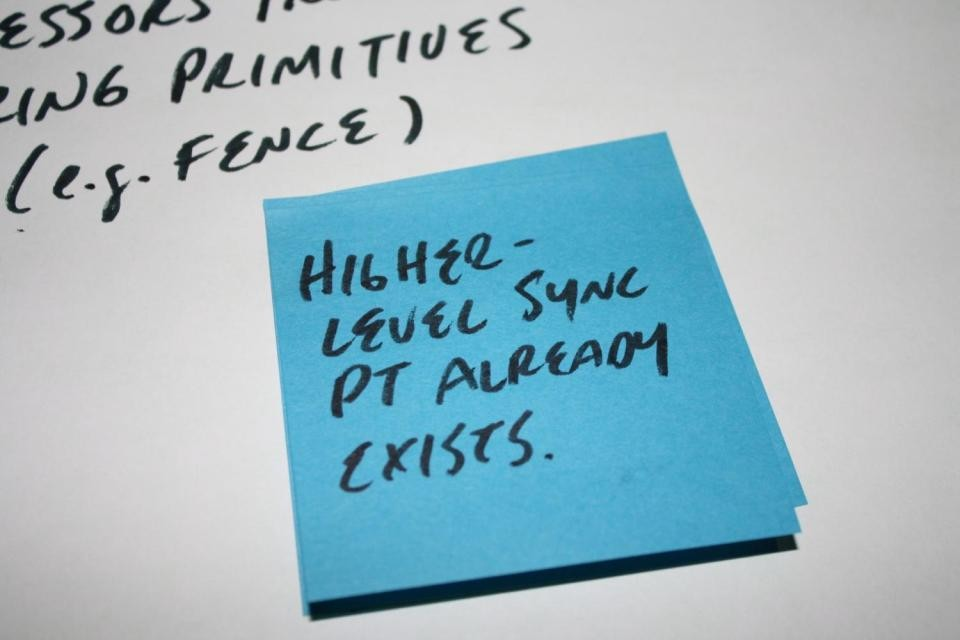 PRIMITIVES
(e.g. FENCE)
HIGHER-
LEVEL SYNC
PT ALREADY
EXISTS.